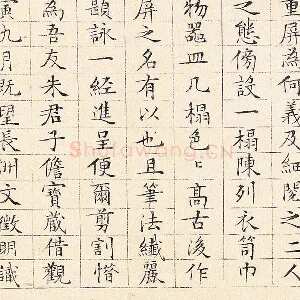 重屏為何義及細閱之二人
之態傍設一榻陳列衣笥巾
物器皿几榻色〻高古後作
屏之名有以也且筆法纖麗
題詠一經進呈便爾剪割惜
為吾友朱君子儋寶藏借觀
寅九月既望長洲文徵明識